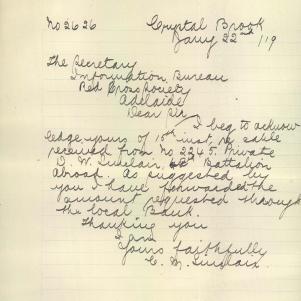 No 2626 Crystal Brook
Jany 22nd /19
The Secretary
Information Bureau
Red Cross Society
Adelaide
Dear Sir
I beg to acknow
ledge yours of 15th inst. re cable
received from No 2245 Private
W. Sinclair, Battalion
Abroad. As suggested by
you I have forwarded the
amount requested through
the local Bank.
Thanking you
I am
Yours faithfully
C. M. Sinclair.